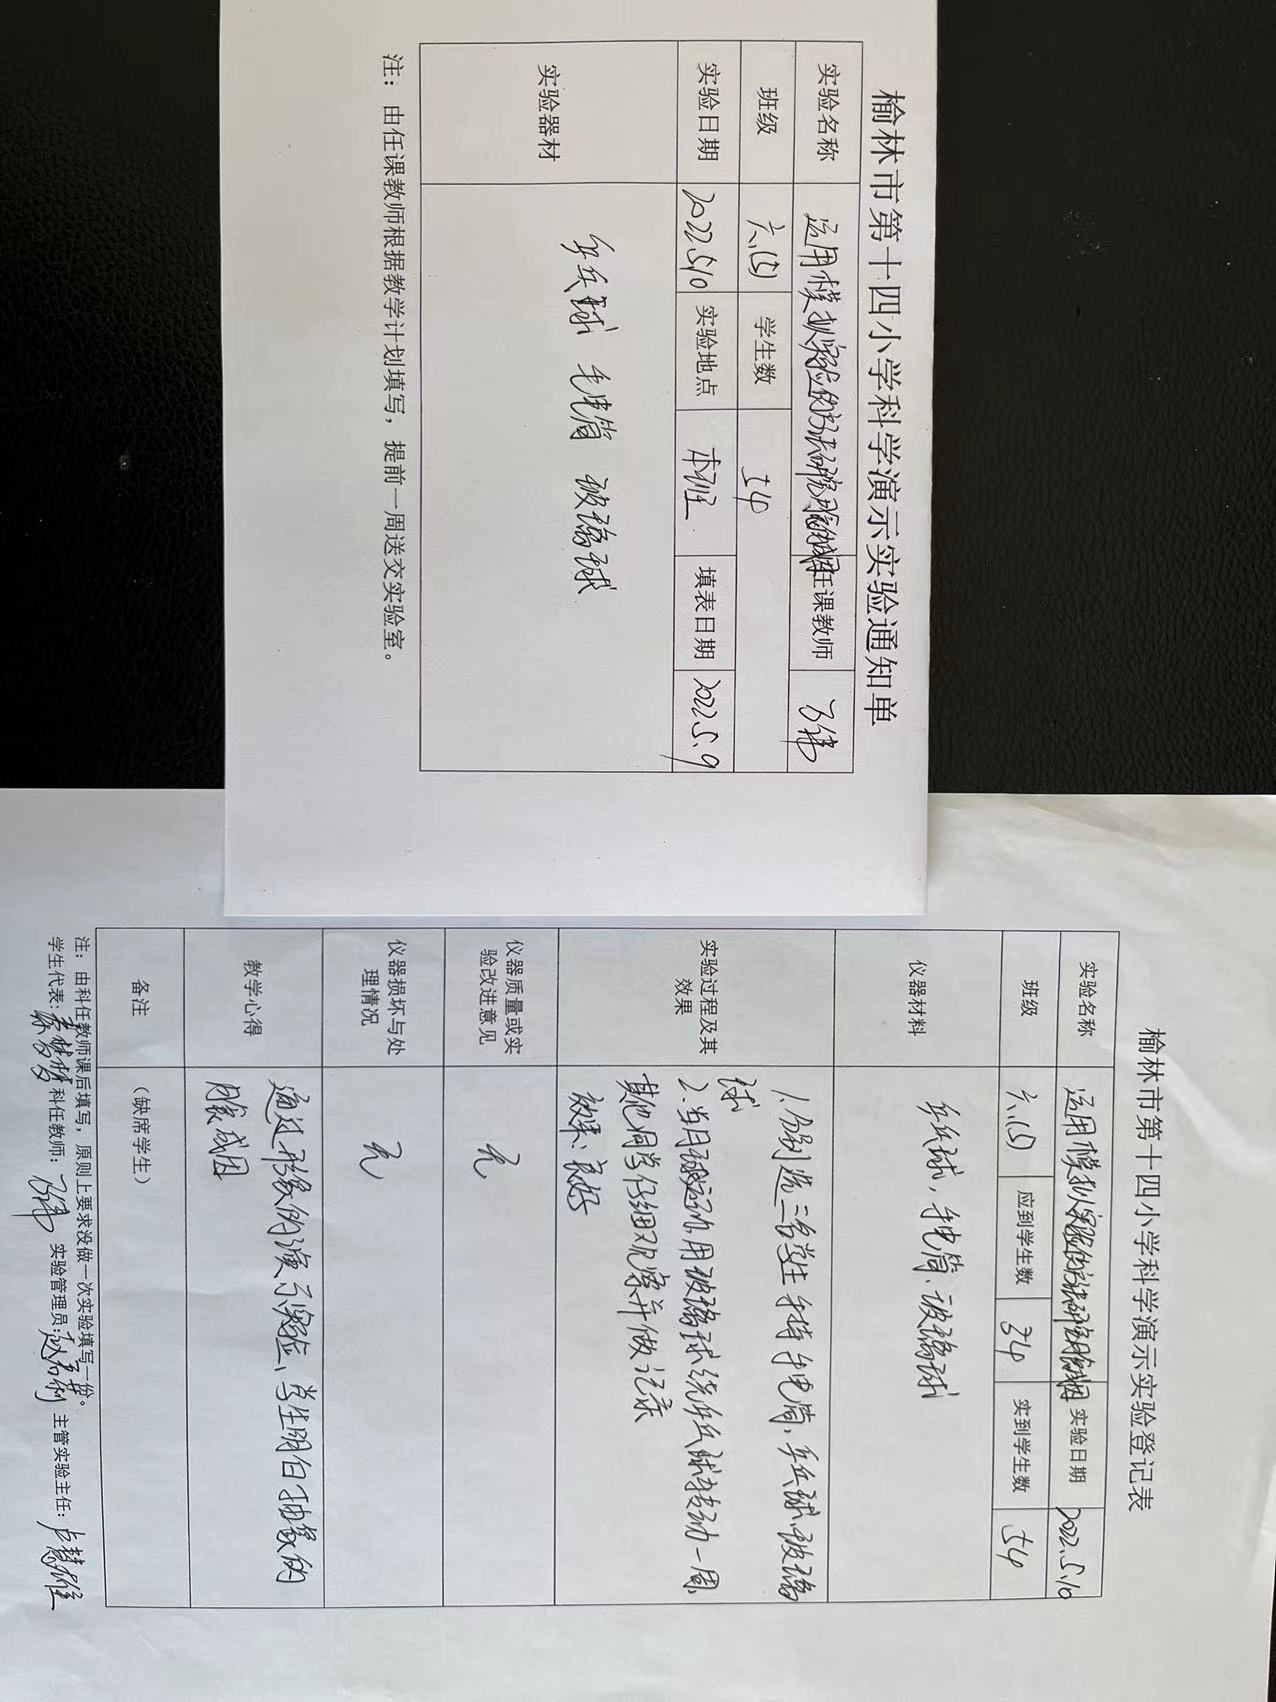 榆林市第十四小学科学演示实验通知单
实验名称 运用模拟实验的方法研究月相成因 任课教师
班级 六.(5) 学生数 54
实验日期 2022.5.10 实验地点 本班 填表日期 2022.5.9
实验器材 乒乓球 手电筒 玻璃球
注：由任课教师根据教学计划填写，提前一周送交实验室。
榆林市第十四小学科学演示实验登记表
实验名称 运用模拟实验的方法研究月 实验日期 2022.5.10
班级 六.(5) 应到学生数 54 实到学生数 54
仪器材料 乒乓球，手电筒、玻璃球
实验过程及其
效果
1.分别选三名学生手持手电筒，乒乓球，玻璃
球
2.当月球运动，用玻璃球绕乒乓球转动一周，
其他同学仔细观察并做记录
效果：良好
仪器质量或实
验改进意见
无
仪器损坏与处
理情况
无
教学心得
通过形象的演示实验、学生明白抽象的
成因
备注 （缺席学生）
注：由科任教师课后填写，原则上要求没做一次实验填写一份。
学生代表： 科任教师： 实验管理员： 主管实验主任：